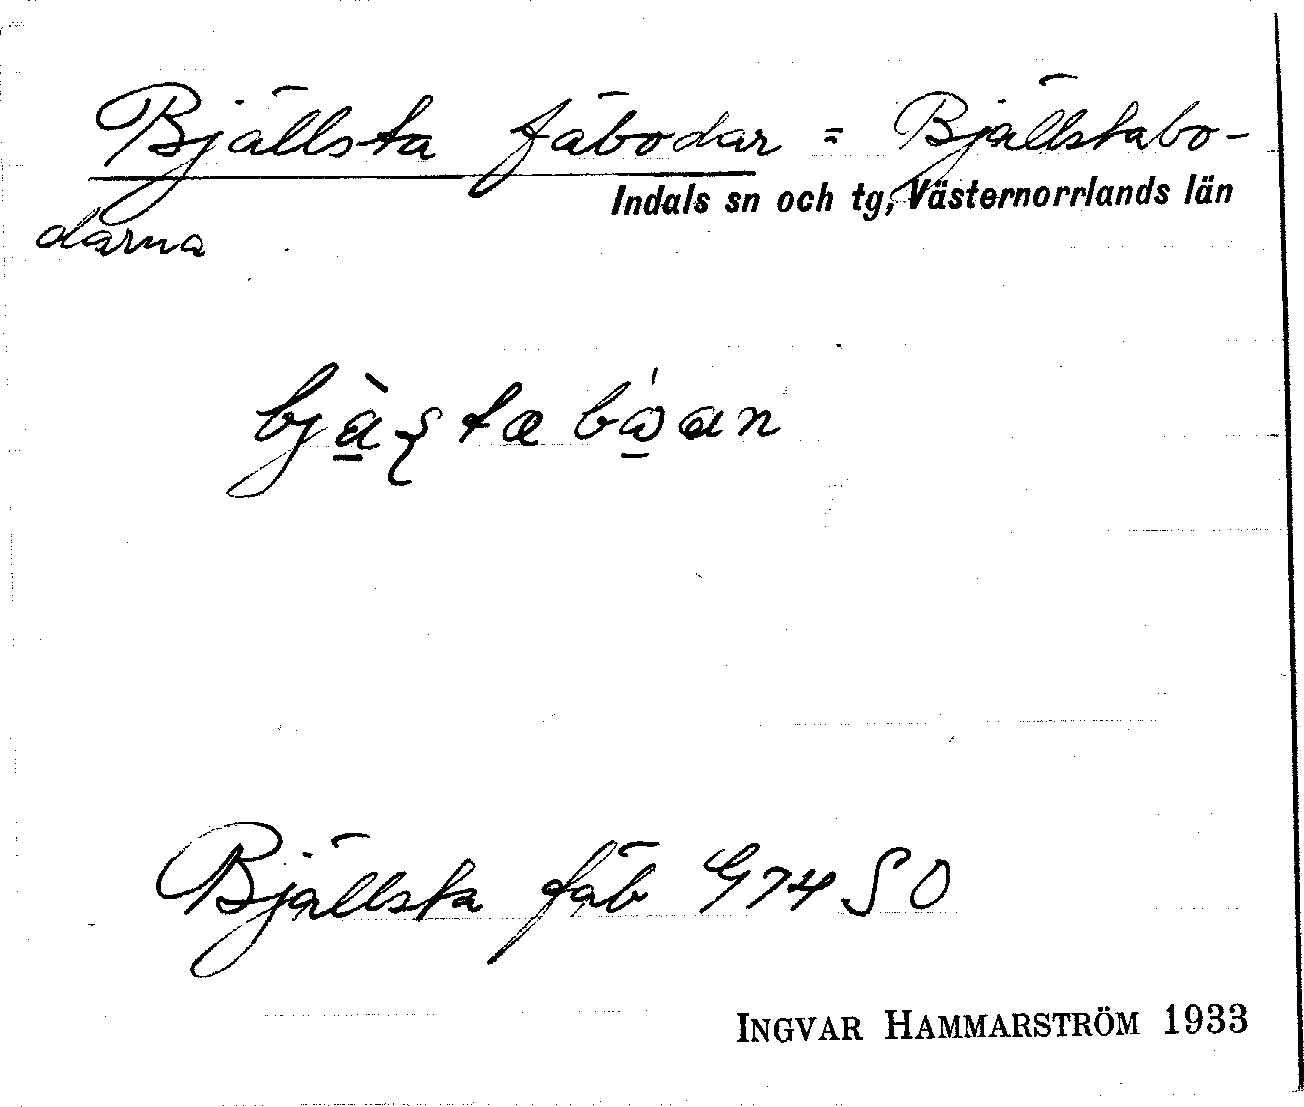 Bjällsta fäbodar = Bjällstabo-
Indals sn och tg, Västernorrlands län
darna
Bjällsta fäb G74 SO
INGVAR HAMMARSTRÖM 1933